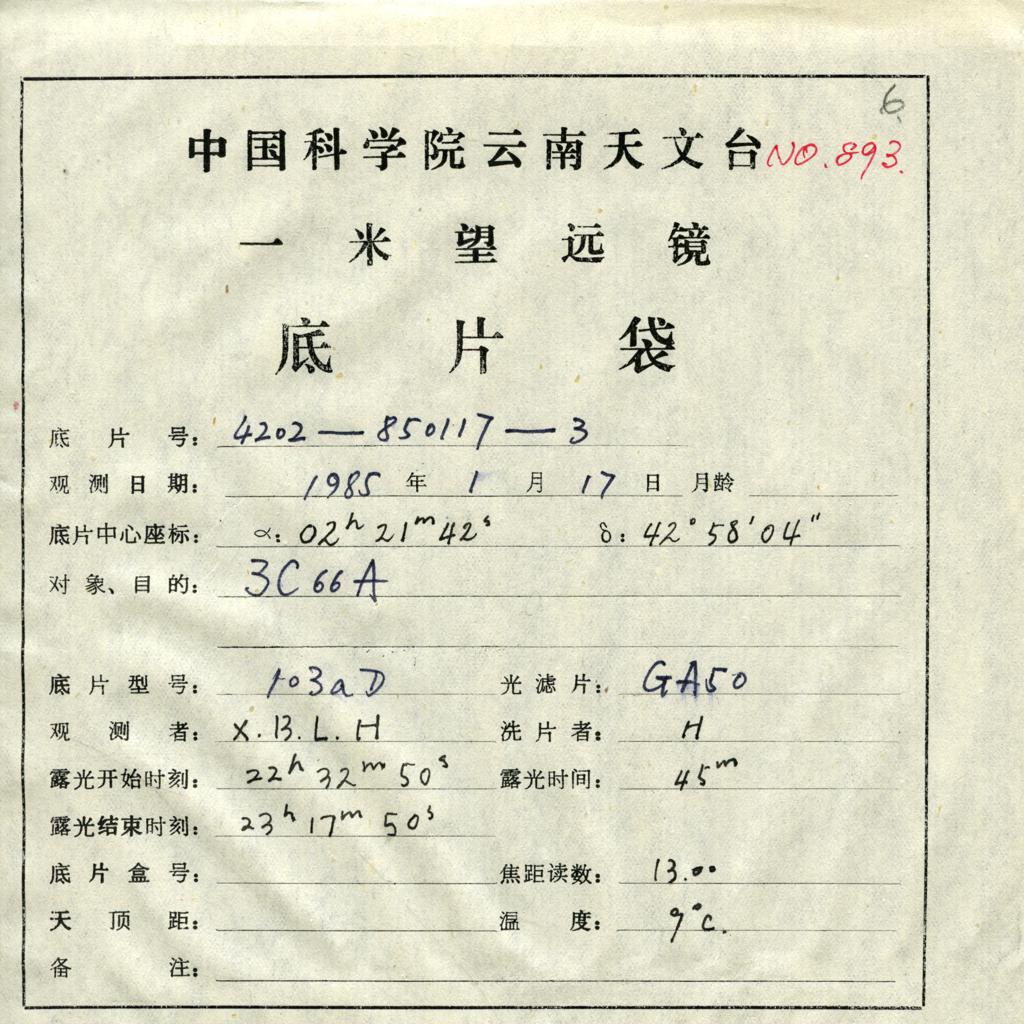 6
中国科学院云南天文台 NO.893.
一米望远镜
底片袋
底片号: 4202—850117—3
观测日期: 1985 年 1 月 17 日 月龄
底片中心座标: α: 02h 21m 42s δ: 42°58'04"
对象、目的: 3C66A
底片型号: 103aD 光滤片: GA50
观测者: X.B.L.H 洗片者: H
露光开始时刻: 22h 32m 50s 露光时间: 45m
露光结束时刻: 23h 17m 50s
底片盒号: 焦距读数: 13.00
天顶距: 温度: 9°C.
备注: